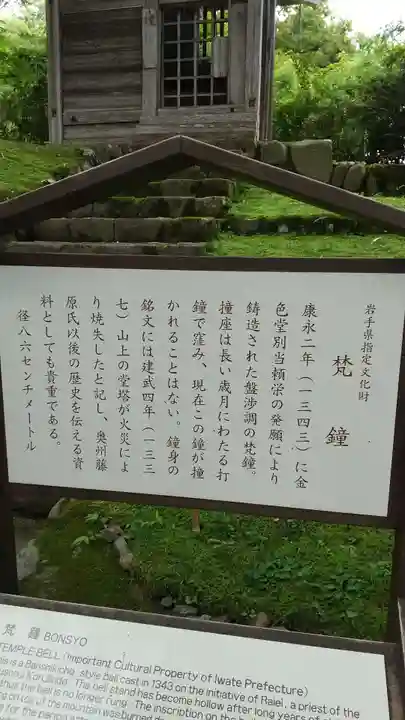 岩手県指定文化財
梵鐘
康永二年（一三四三）に金
色堂別当頼栄の発願により
鋳造された盤渉調の梵鐘。
撞座は長い歳月にわたる打
鐘で窪み、現在この鐘が撞
かれることはない。鐘身の
銘文には建武四年（一三三
七）山上の堂塔が火災によ
り焼失したと記し、奥州藤
原氏以後の歴史を伝える資
料としても貴重である。
径八六センチメートル
梵鐘 BONSYO
TEMPLE BELL (Important Cultural Property of Iwate Prefecture)
is a Banshikicho style bell cast in 1343 on the initiative of Raiei, a priest of the
The bell stand has become hollow after long years of
thus the bell is no longer rung. The inscription on the
of the mountain was burned